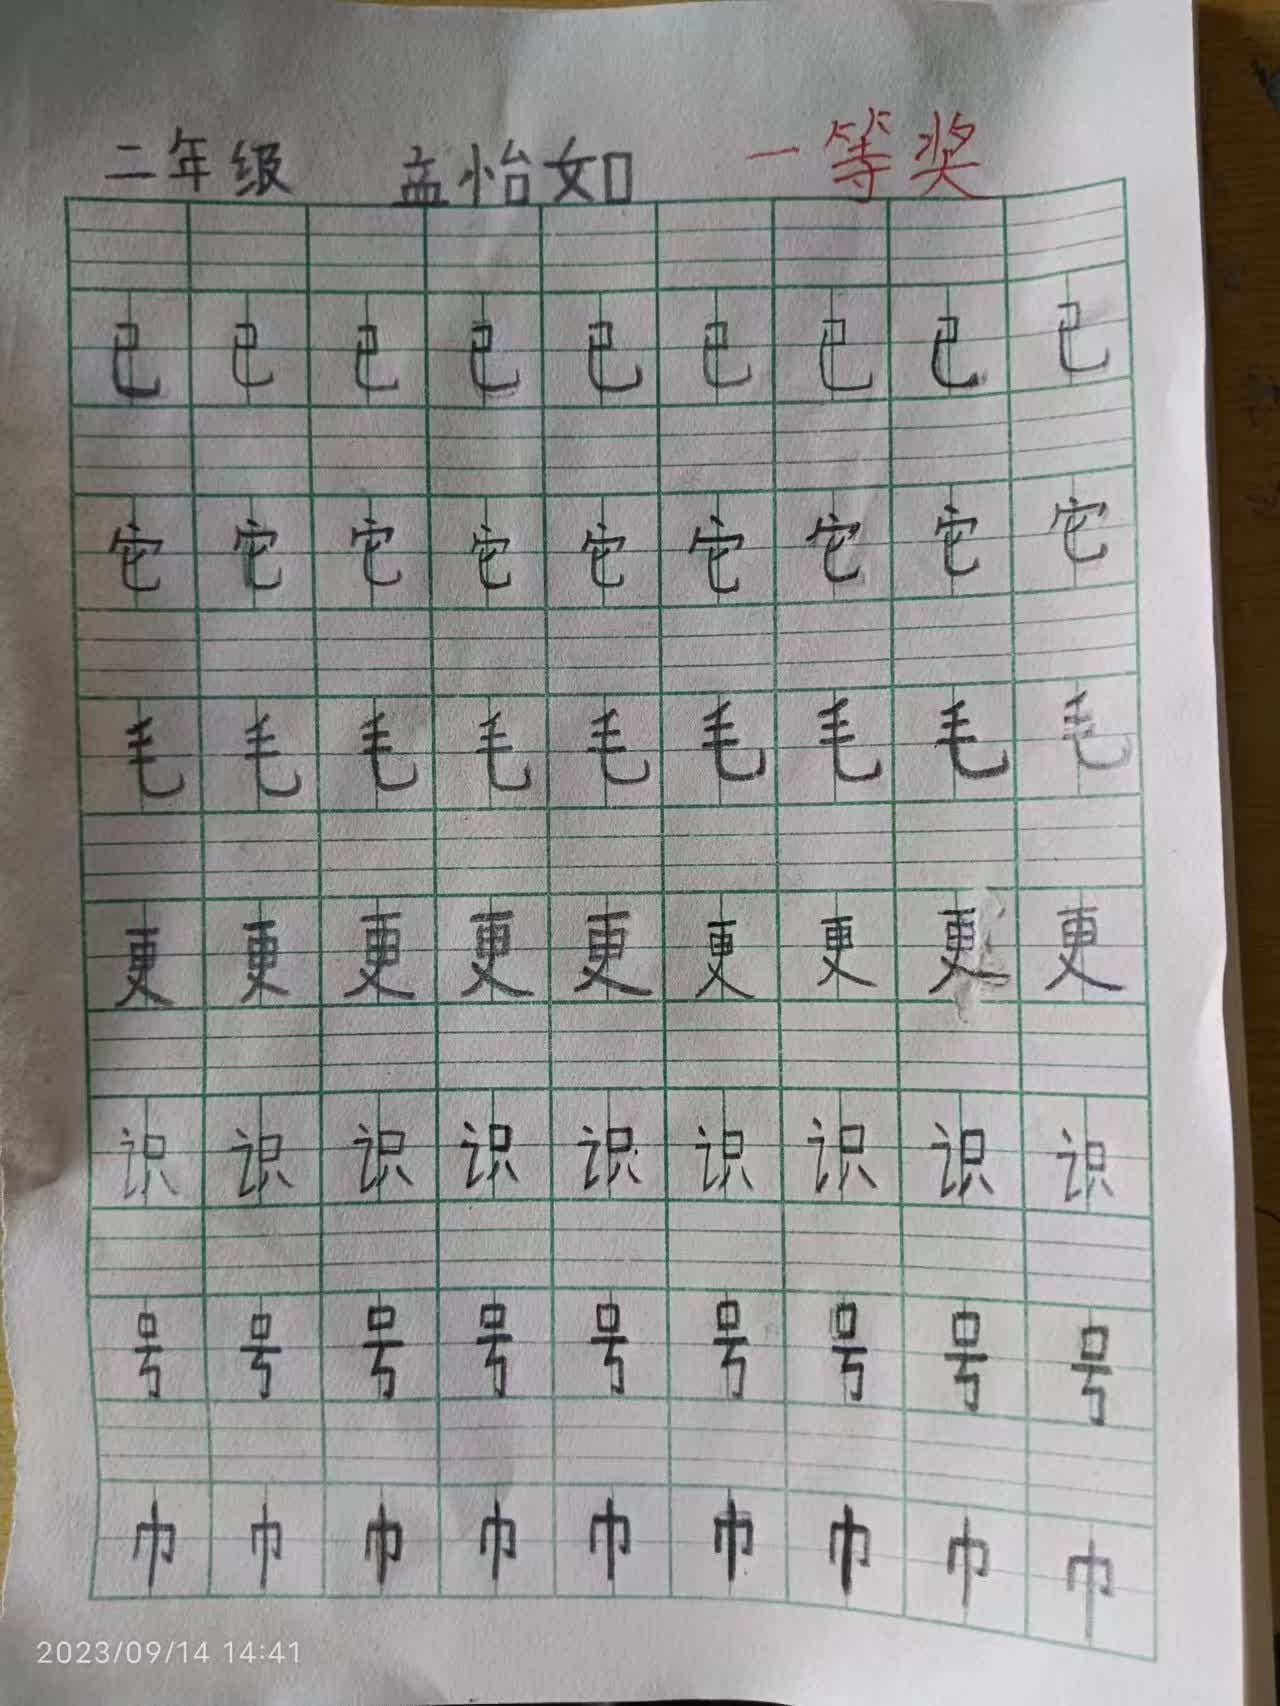 二年级 孟怡如 一等奖
已 已 已 已 已 已 已 已 已
它 它 它 它 它 它 它 它 它
毛 毛 毛 毛 毛 毛 毛 毛 毛
更 更 更 更 更 更 更 更 更
识 识 识 识 识 识 识 识 识
号 号 号 号 号 号 号 号 号
巾 巾 巾 巾 巾 巾 巾 巾 巾
2023/09/14 14:41